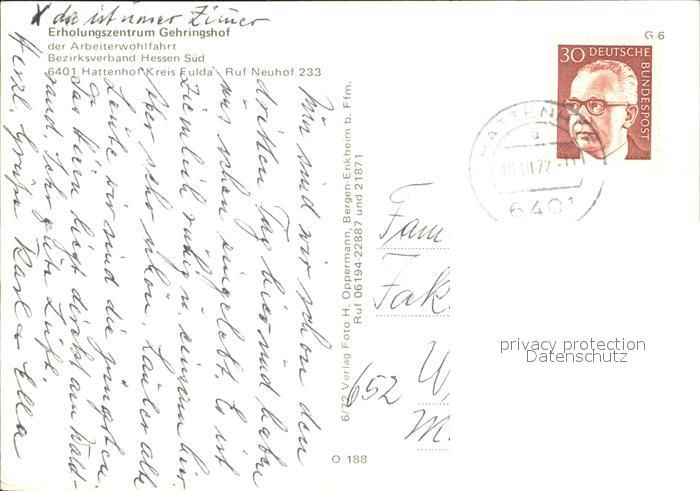 X da ist unser Zimer
Erholungszentrum Gehringshof
der Arbeiterwohlfahrt
Bezirksverband Hessen Süd
6401 Hattenhof Kreis Fulda · Ruf Neuhof 233
Nun sind wir schon den
dritten Tag hier und haben
uns schon eingelebt. Es ist
ziemlich ruhig u. einsam hier
aber sehr schön. Lauter alte
Leute wir sind die jüngsten.
Das Heim liegt direkt am Wald-
rand, sehr gute Luft.
Herzl. Grüße Karl u. Ella
6/72 Verlag Foto H. Oppermann, Bergen-Enkheim b. Ffm.
Ruf 06194-22887 und 21871
G 6
30 DEUTSCHE
BUNDESPOST
HATTENHOF
a
6401
Fam
Fak
652 W
M
O 188
privacy protection
Datenschutz